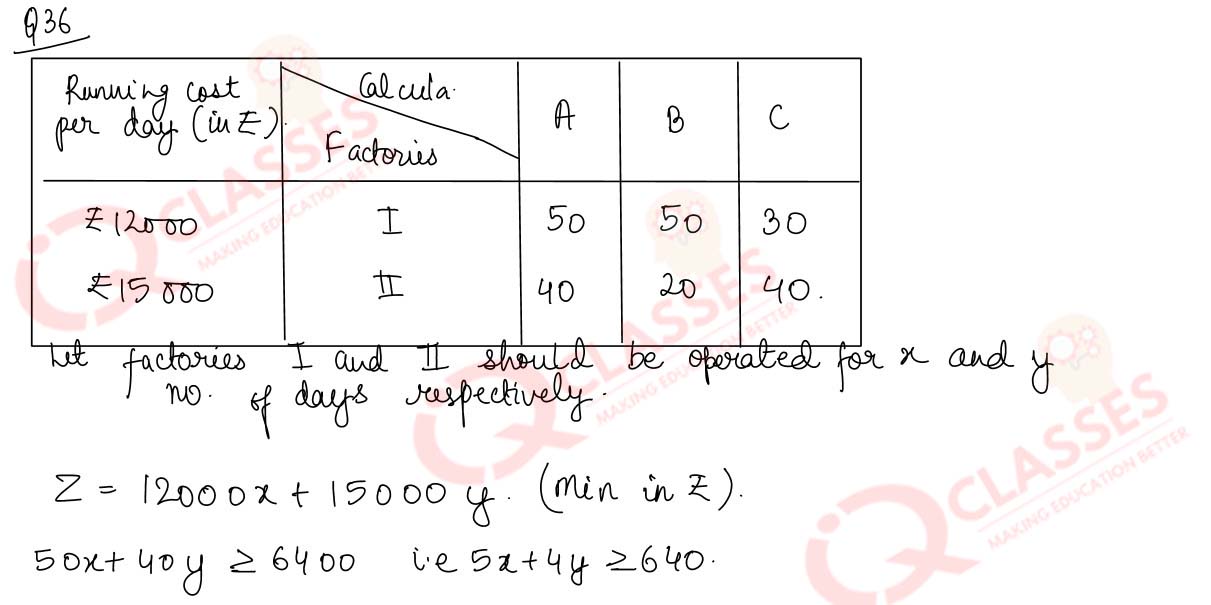 Q36
Running cost per day (in ₹). Calcula. Factories A B C
₹12000 I 50 50 30
₹15000 II 40 20 40.
Let factories I and II should be operated for x and y
no. of days respectively.
Z = 12000x + 15000y. (Min in ₹).
50x + 40y ≥ 6400 i.e 5x + 4y ≥ 640.
IQ CLASSES
MAKING EDUCATION BETTER
IQ CLASSES
MAKING EDUCATION BETTER
IQ CLASSES
MAKING EDUCATION BETTER